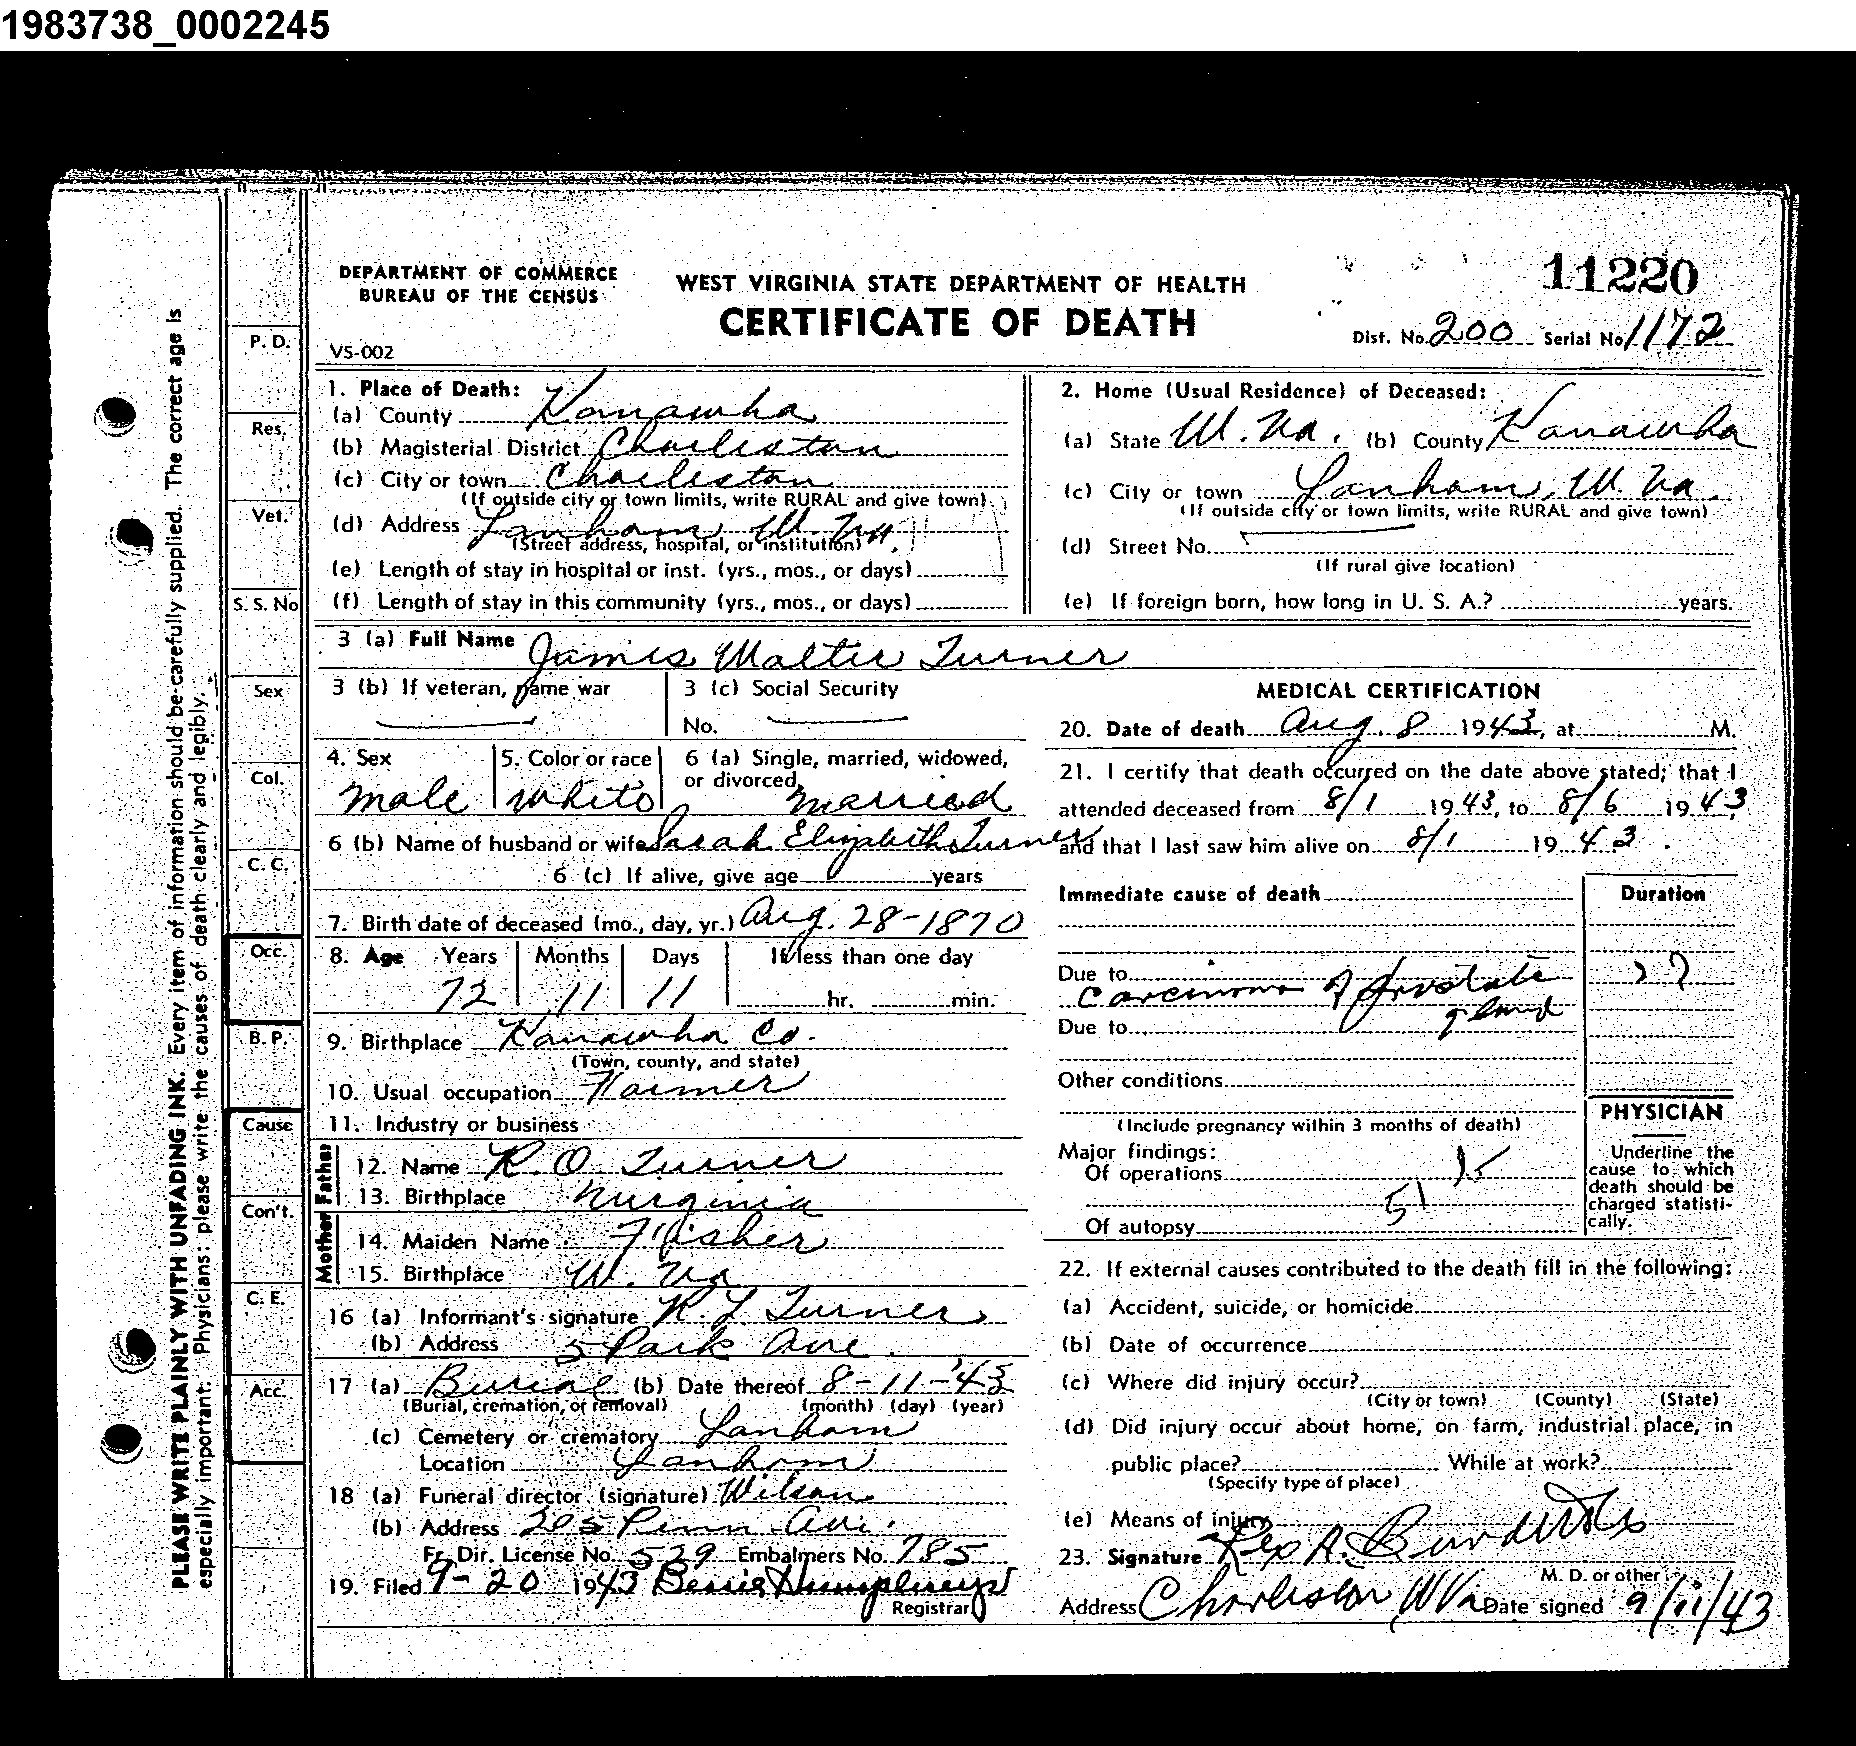 1983738_0002245
DEPARTMENT OF COMMERCE
BUREAU OF THE CENSUS
WEST VIRGINIA STATE DEPARTMENT OF HEALTH
CERTIFICATE OF DEATH
11220
Dist. No. 200 Serial No. 1172
VS-002
PLEASE WRITE PLAINLY WITH UNFADING INK. Every item of information should be carefully supplied. The correct age is
especially important. Physicians: please write the causes of death clearly and legibly.
P. D.
Res.
Vet.
S. S. No
Sex
Col.
C. C.
Occ.
B. P.
Cause
Con't.
C. E.
Acc.
1. Place of Death:
(a) County Kanawha
(b) Magisterial District Charleston
(c) City or town Charleston
(If outside city or town limits, write RURAL and give town)
(d) Address Lanham W. Va.
(Street address, hospital, or institution)
(e) Length of stay in hospital or inst. (yrs., mos., or days)
(f) Length of stay in this community (yrs., mos., or days)
2. Home (Usual Residence) of Deceased:
(a) State W. Va. (b) County Kanawha
(c) City or town Lanham, W. Va.
(If outside city or town limits, write RURAL and give town)
(d) Street No.
(If rural give location)
(e) If foreign born, how long in U. S. A.? years.
3 (a) Full Name James Walter Turner
3 (b) If veteran, name war
3 (c) Social Security
No.
4. Sex male
5. Color or race white
6 (a) Single, married, widowed,
or divorced, married
6 (b) Name of husband or wife Sarah Elizabeth Turner
6 (c) If alive, give age years
7. Birth date of deceased (mo., day, yr.) Aug. 28-1870
8. Age Years Months Days If less than one day
72 11 11 hr. min.
9. Birthplace Kanawha Co.
(Town, county, and state)
10. Usual occupation Farmer
11. Industry or business
Father
12. Name R. O. Turner
13. Birthplace Virginia
Mother
14. Maiden Name Fisher
15. Birthplace W. Va
16 (a) Informant's signature R L Turner
(b) Address 5 Park Ave.
17 (a) Burial (b) Date thereof 8-11-'43
(Burial, cremation, or removal) (month) (day) (year)
(c) Cemetery or crematory Lanham
Location Lanham
18 (a) Funeral director (signature) Wilson
(b) Address 205 Penn Ave.
Fr. Dir. License No. 529 Embalmers No. 785
19. Filed 9-20 1943 Bessie Humphreys
Registrar
MEDICAL CERTIFICATION
20. Date of death Aug. 8 1943, at M.
21. I certify that death occurred on the date above stated; that I
attended deceased from 8/1 1943, to 8/6 1943
and that I last saw him alive on 8/1 1943.
Immediate cause of death
Duration
Due to
carcinoma of prostate
gland
??
Due to
Other conditions
(Include pregnancy within 3 months of death)
Major findings:
Of operations
51
Of autopsy
PHYSICIAN
Underline the
cause to which
death should be
charged statisti-
cally.
22. If external causes contributed to the death fill in the following:
(a) Accident, suicide, or homicide
(b) Date of occurrence
(c) Where did injury occur?
(City or town) (County) (State)
(d) Did injury occur about home, on farm, industrial place, in
public place? While at work?
(Specify type of place)
(e) Means of injury
23. Signature Rex A. Burdette
M. D. or other
Address Charleston, W Va Date signed 9/11/43